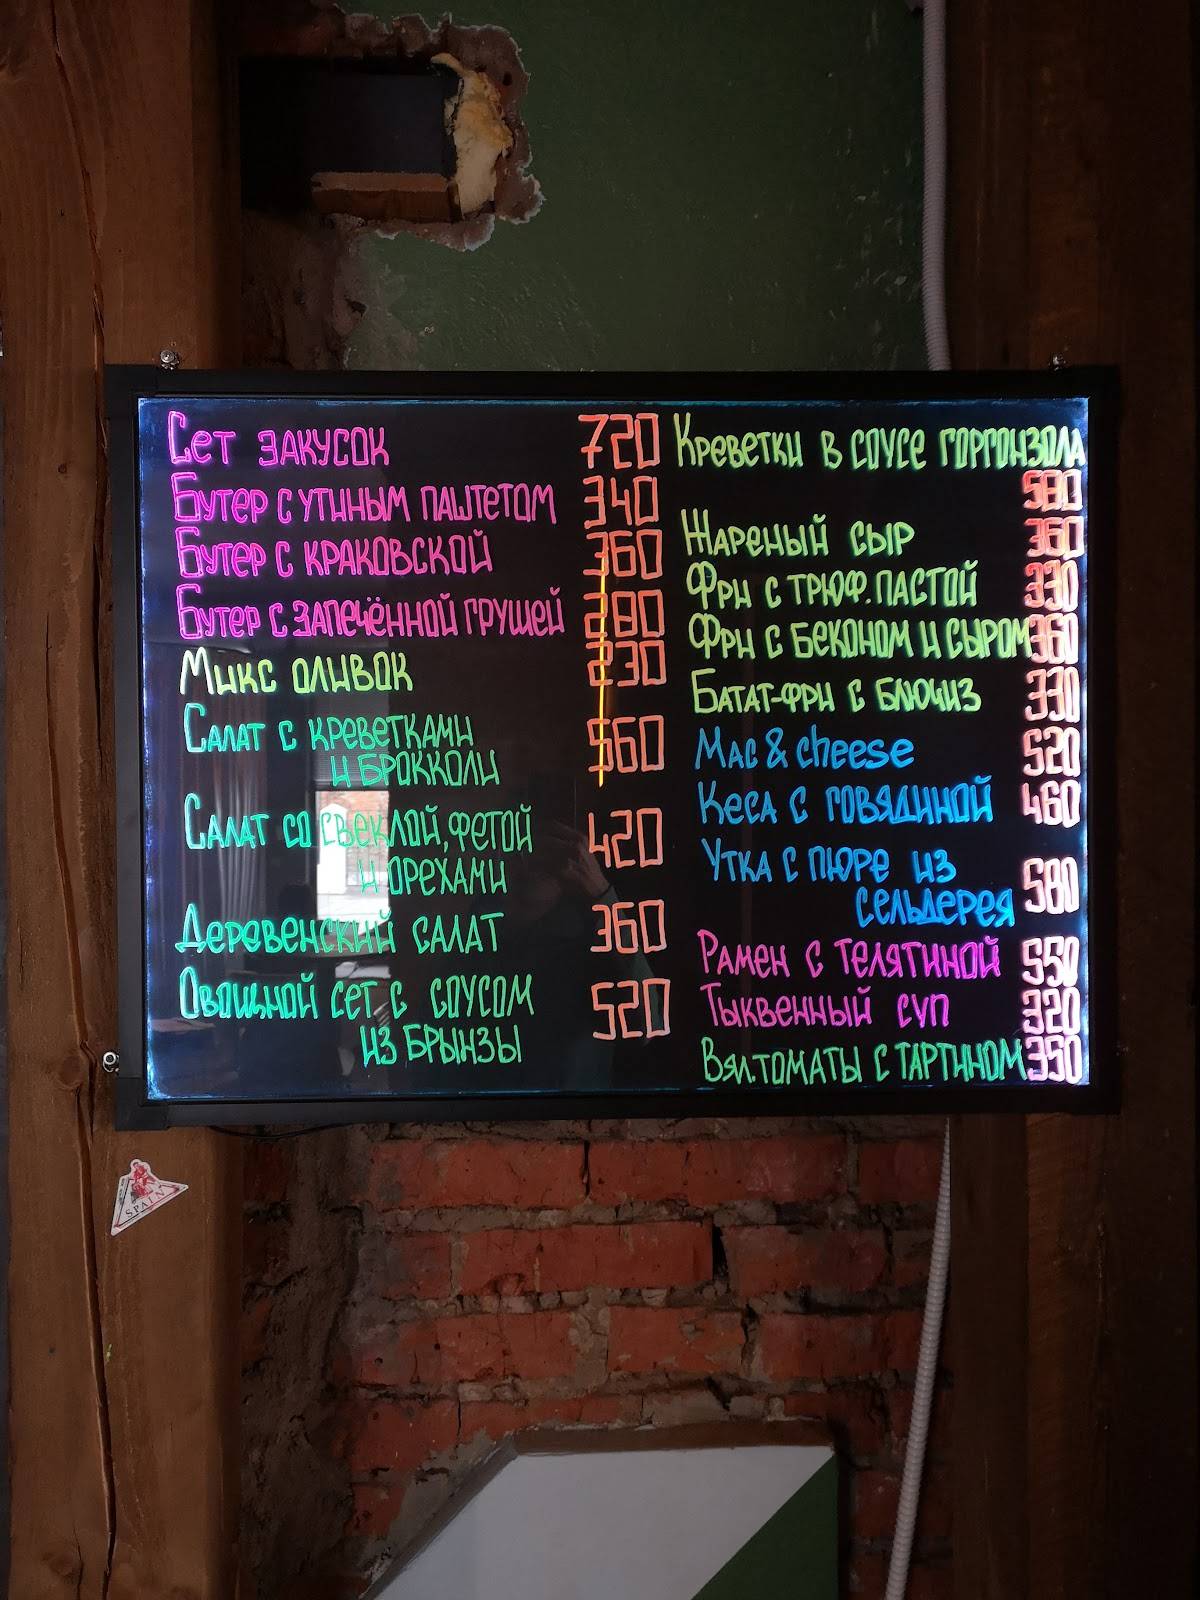 Сет закусок 720
Бутер с утиным паштетом 340
Бутер с краковской 360
Бутер с запечённой грушей 280
Микс оливок 230
Салат с креветками
и брокколи 560
Салат со свеклой, фетой
и орехами 420
Деревенский салат 360
Овощной сет с соусом
из брынзы 520
Креветки в соусе горгонзола
580
Жареный сыр 360
Фри с трюф. пастой 330
Фри с беконом и сыром 360
Батат-фри с блючиз 330
Mac & cheese 520
Кеса с говядиной 460
Утка с пюре из
сельдерея 580
Рамен с телятиной 550
Тыквенный суп 320
Вял. томаты с тартином 350
SPAIN